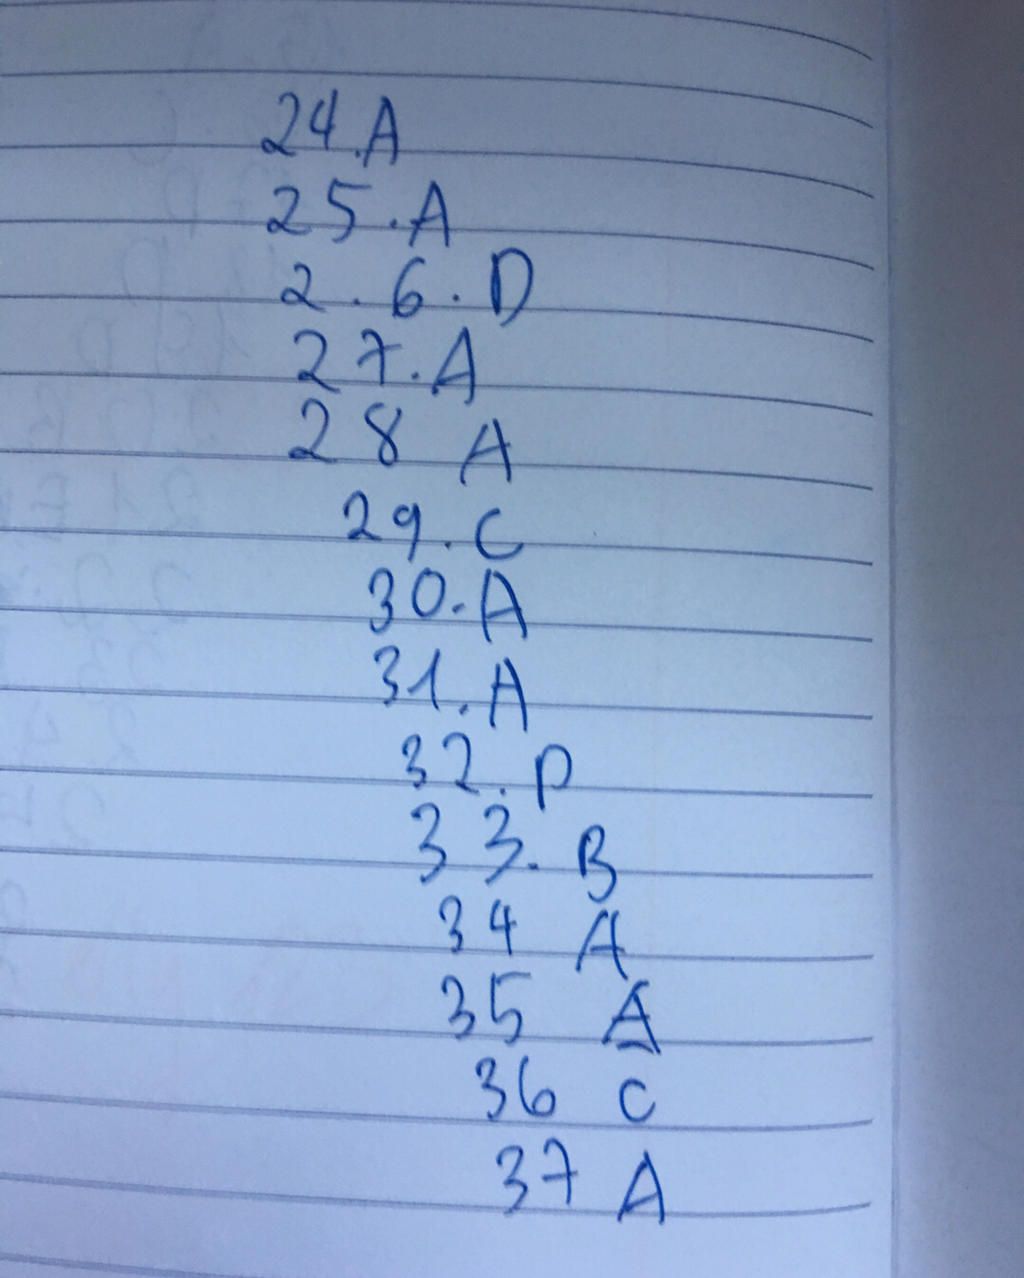 24.A
25.A
2.6.D
27.A
28 A
29.C
30.A
31.A
32.D
33.B
34 A
35 A
36 C
37 A